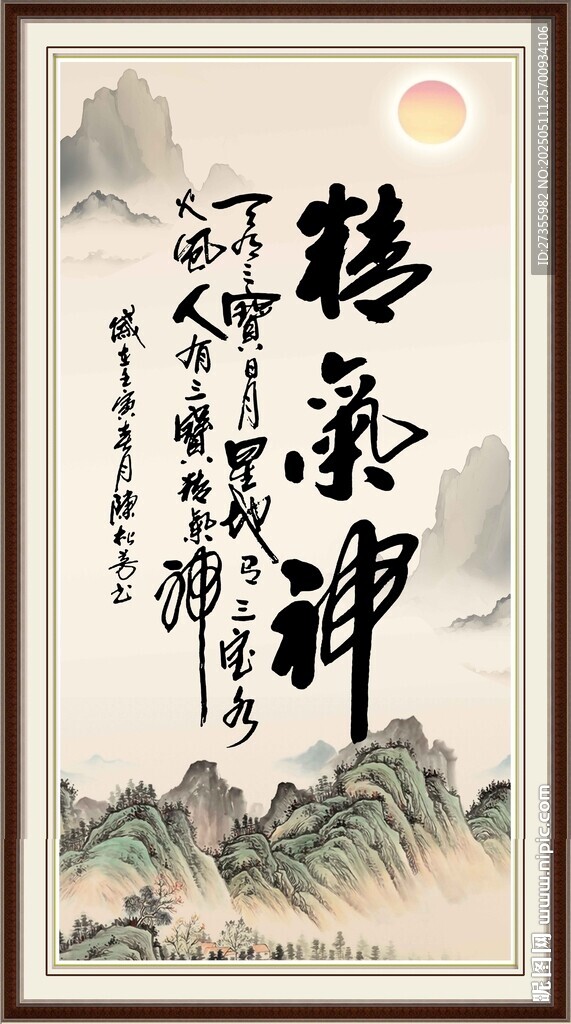 精氣神
天有三寶日月星地有三宝水
火風人有三寶精氣神
歲在壬寅春月陳松芳书
ID:27355982 NO:20250511125700934106
昵图网 www.nipic.com